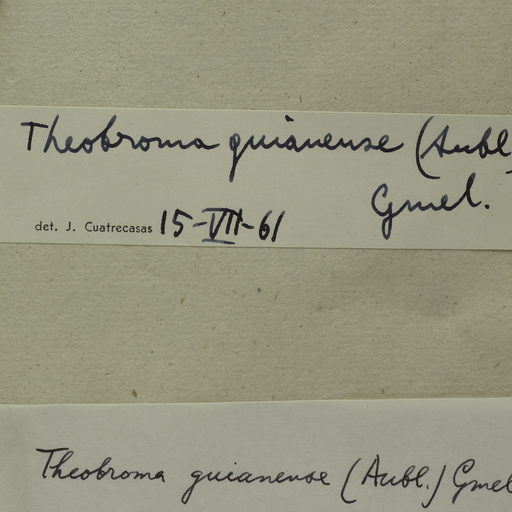 Theobroma guianense (Aubl
Gmel.
det. J. Cuatrecasas 15-VII-61
Theobroma guianense (Aubl.) Gmel